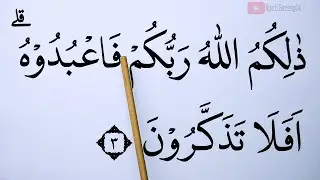 ذٰلِكُمُ اللّٰهُ رَبُّكُمْ فَاعْبُدُوْهُ ۗ
اَفَلَا تَذَكَّرُوْنَ ﴿٣﴾